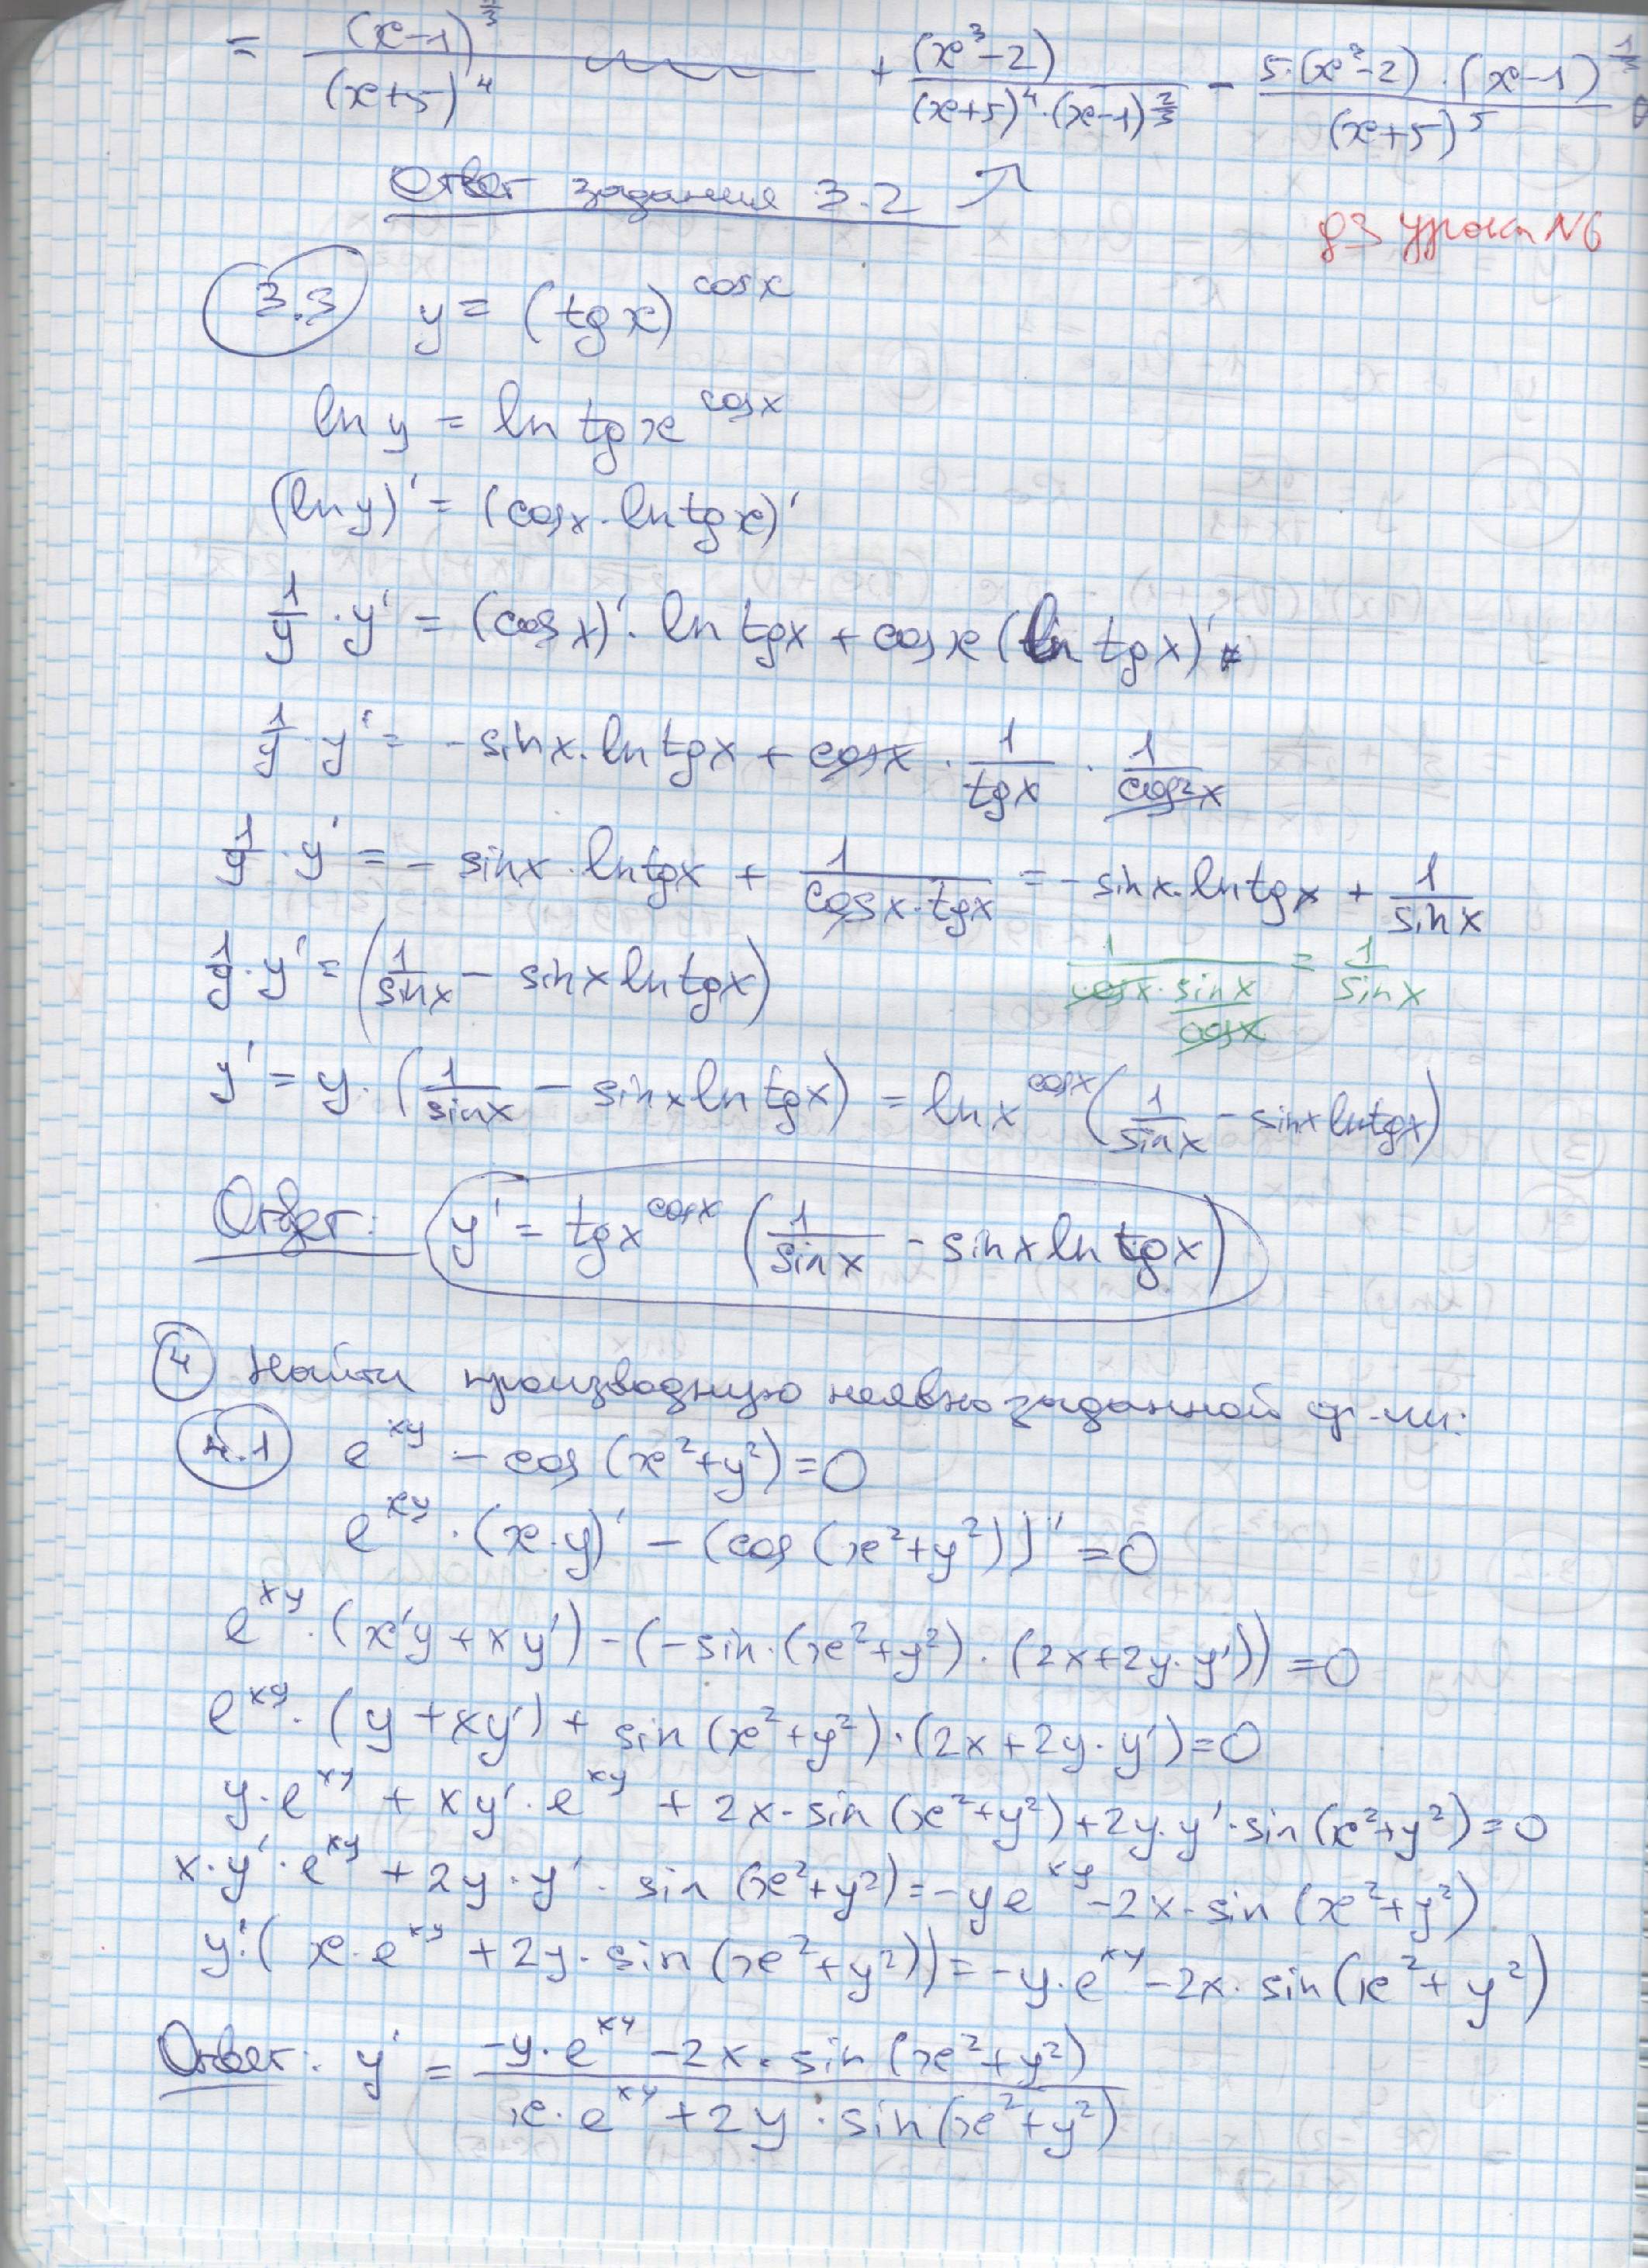 = (x-1)^{1/3} / (x+5)^4 + (x^3-2) / ((x+5)^4·(x-1)^{2/3}) - 5·(x^3-2)·(x-1)^{1/3} / (x+5)^5
Ответ задания 3.2 ↗
ДЗ Урока N6
3.3 y = (tg x)^{cos x}
ln y = ln tg x^{cos x}
(ln y)' = (cos x · ln tg x)'
1/y · y' = (cos x)' · ln tg x + cos x (ln tg x)'
1/y · y' = - sin x · ln tg x + cos x · 1/tg x · 1/cos^2 x
1/y · y' = - sin x · ln tg x + 1/(cos x · tg x) = - sin x · ln tg x + 1/sin x
1/y · y' = (1/sin x - sin x ln tg x)
1/(cos x · sin x/cos x) = 1/sin x
y' = y · (1/sin x - sin x ln tg x) = ln x^{cos x} (1/sin x - sin x ln tg x)
Ответ: y' = tg x^{cos x} (1/sin x - sin x ln tg x)
4 Найти производную неявно заданной ф-ии:
4.1 e^{xy} - cos (x^2+y^2) = 0
e^{xy} · (x·y)' - (cos (x^2+y^2))' = 0
e^{xy} · (x'y + xy') - (-sin · (x^2+y^2) · (2x+2y·y')) = 0
e^{xy} · (y + xy') + sin (x^2+y^2) · (2x + 2y·y') = 0
y·e^{xy} + xy'·e^{xy} + 2x·sin (x^2+y^2) + 2y·y'·sin (x^2+y^2) = 0
x·y'·e^{xy} + 2y·y'·sin (x^2+y^2) = -ye^{xy} - 2x·sin (x^2+y^2)
y'·(x·e^{xy} + 2y·sin (x^2+y^2)) = -y·e^{xy} - 2x·sin (x^2+y^2)
Ответ: y' = (-y·e^{xy} - 2x·sin (x^2+y^2)) / (x·e^{xy} + 2y·sin (x^2+y^2))